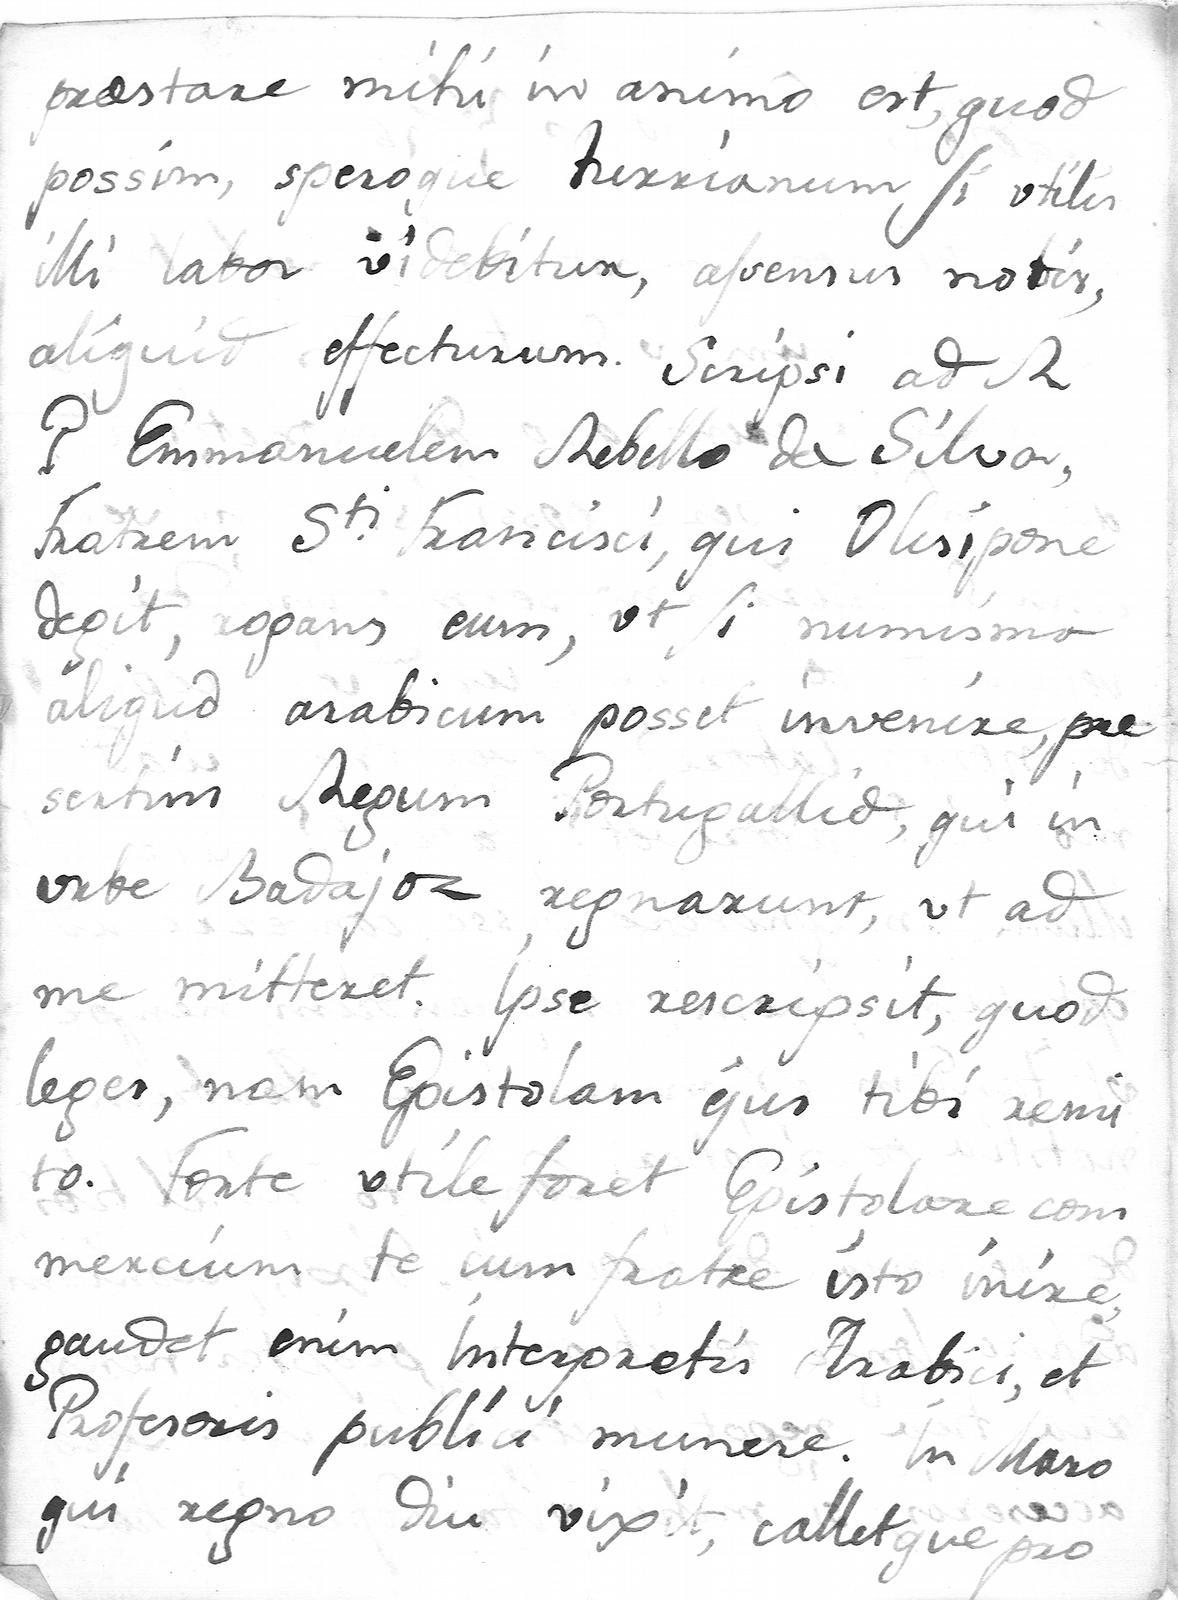 præstare mihi in animo est, quod
possim, speroque Turrianum, si vtilis
illi labor videbitur, assensus nobis,
aliquid effecturum. Scripsi ad R
P Emmanuelem Rebello da Silva,
Fratrem Sti. Francisci, qui Olisipone
degit, rogans eum, vt si numisma
aliquid arabicum posset invenire, præ
sertim Regum Portugalliæ, qui in
vrbe Badajoz regnarunt, vt ad
me mitteret. Ipse rescripsit, quod
leges, nam Epistolam ejus tibi remi
to. Forte vtile foret Epistolare com
mercium te cum fratre isto inire,
gaudet enim Interpretis Arabici, et
Professoris publici munere. In Maro
qui regno diu vixit, calletque pro